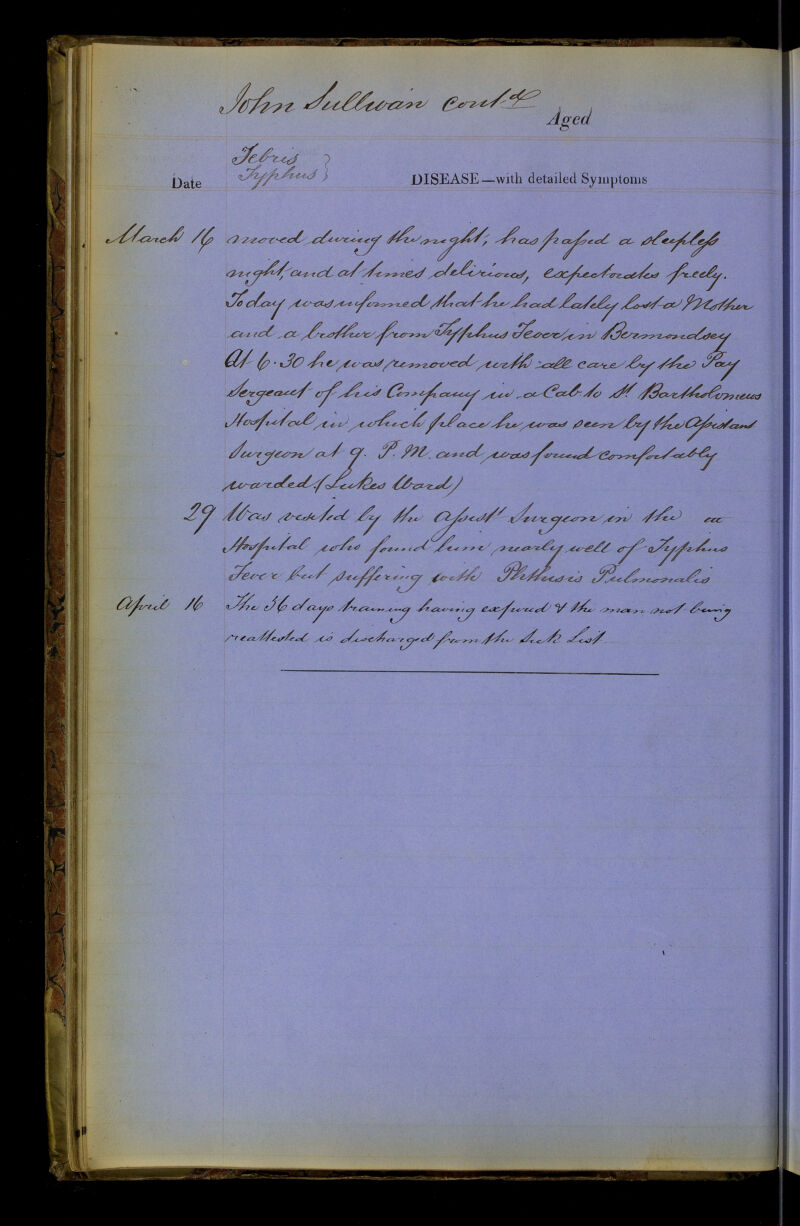 John Sullivan contd
Aged
Febris
Typhus }
Date DISEASE—with detailed Symptoms
March 16 moved during the night; has passed a sleepless
night, and at times delirious, expectorates freely.
Today was informed that he had lately lost a Mother
and a brother from Typhus Fever in Bermondsey
At 6.30 he was removed with all care by the Pay
Sergeant of his Company in a Cab to St Bartholomews
Hospital in which place he was seen by the Assistant
Surgeon at 9. P.M. and was found comfortably
warded (Lukes Ward)
29 Was visited by the Assist Surgeon in the
Hospital who found him nearly well of Typhus
Fever but suffering with Phthisis Pulmonalis
April 16 The 56 days training having expired & the man not being
reattested is discharged from the Sick List